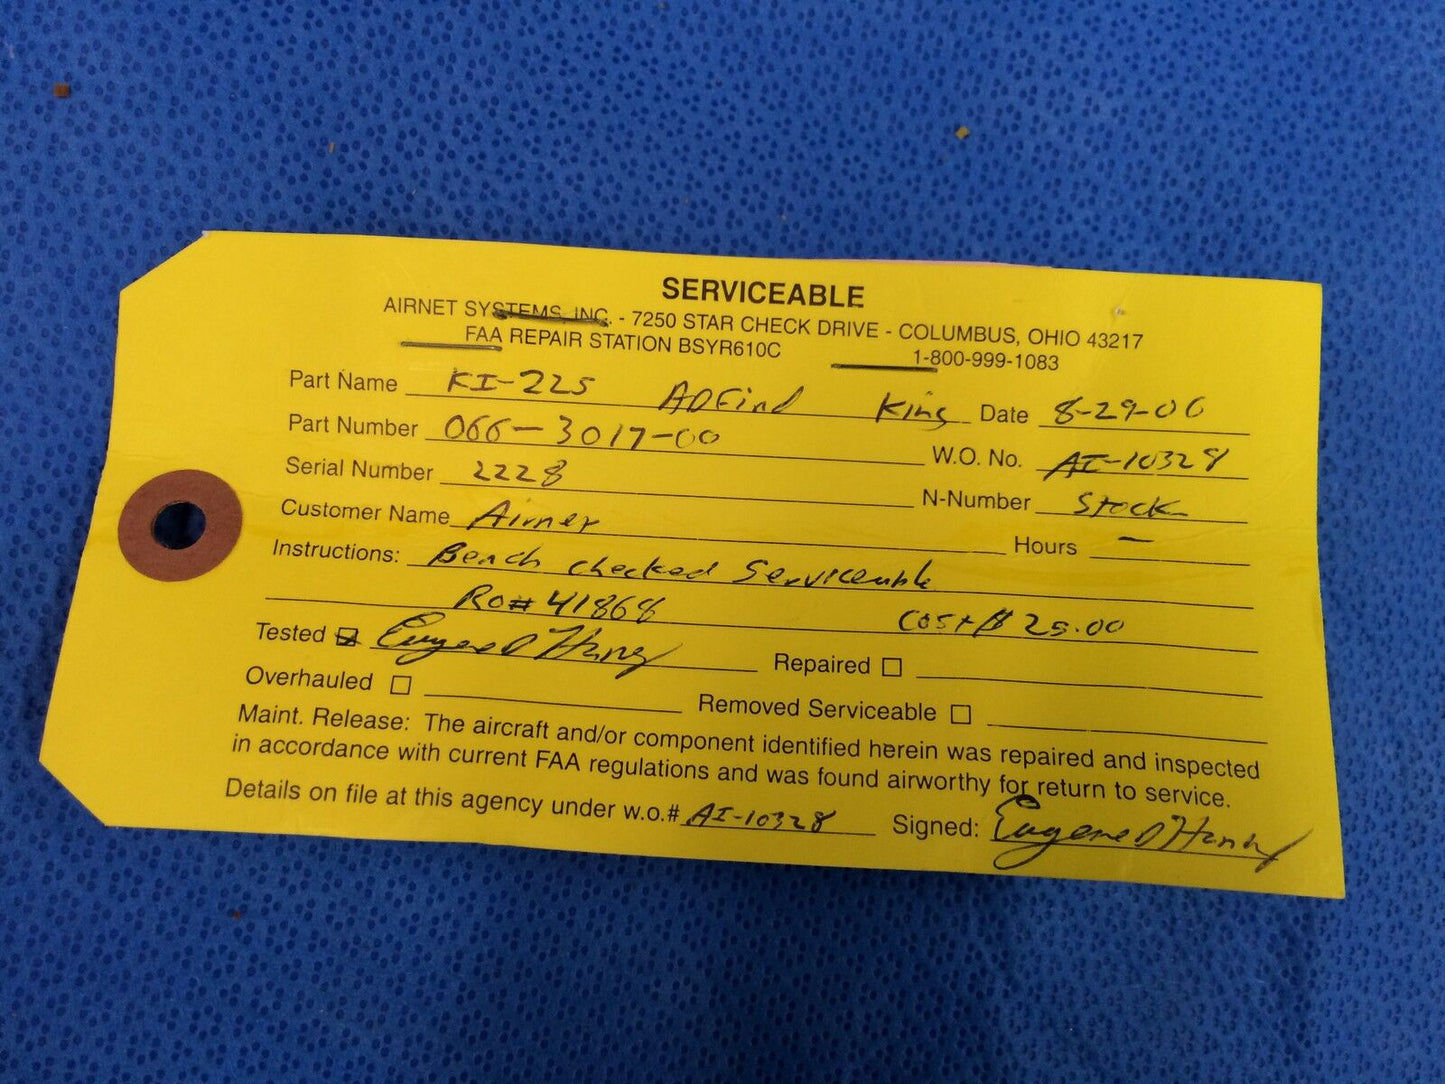 SERVICEABLE
AIRNET SYSTEMS, INC. - 7250 STAR CHECK DRIVE - COLUMBUS, OHIO 43217
FAA REPAIR STATION BSYR610C 1-800-999-1083
Part Name KI-225 ADFind King Date 8-29-06
Part Number 066-3017-00 W.O. No. AI-10328
Serial Number 2228 N-Number Stock
Customer Name Airnet Hours —
Instructions: Bench checked Serviceable
RO# 41868 Cost $ 25.00
Tested ☑ Eugene D Haney Repaired ☐
Overhauled ☐ Removed Serviceable ☐
Maint. Release: The aircraft and/or component identified herein was repaired and inspected
in accordance with current FAA regulations and was found airworthy for return to service.
Details on file at this agency under w.o.# AI-10328 Signed: Eugene D Haney